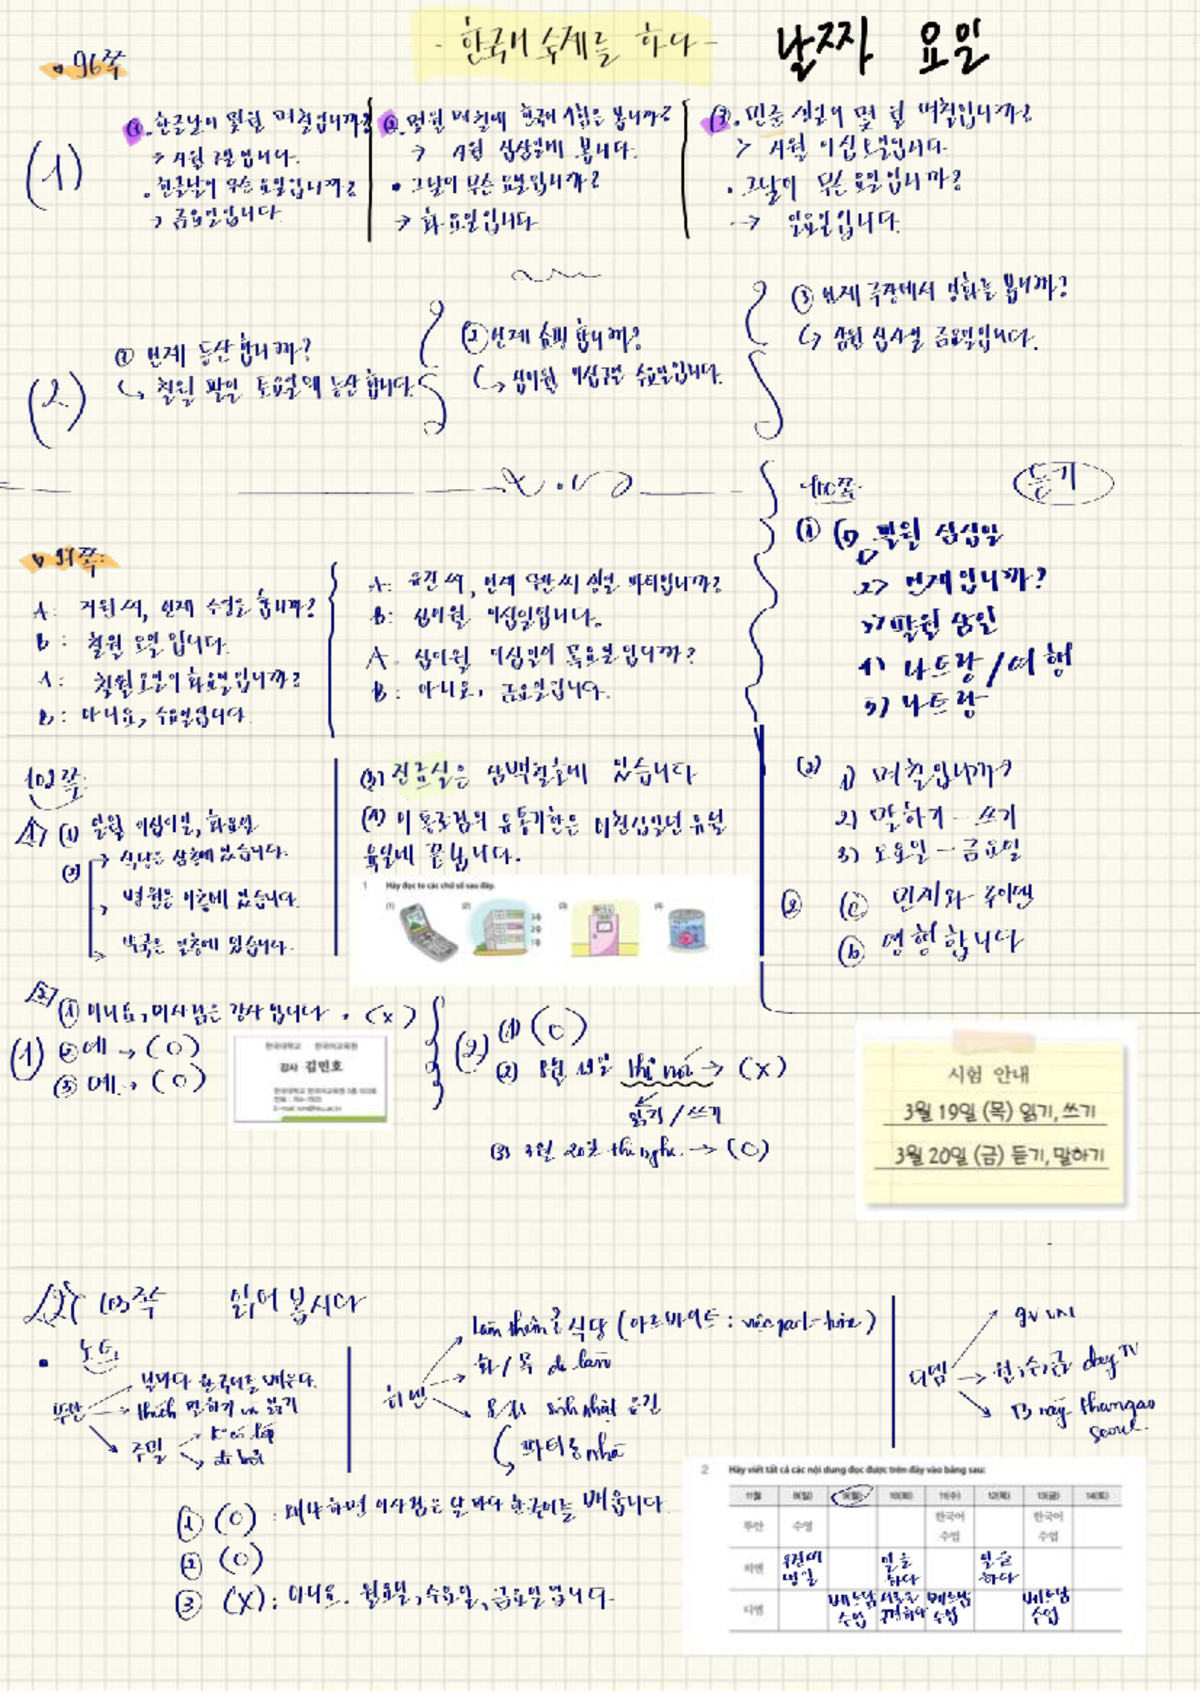 - 한국어 숙제를 하다 -
날짜 요일
• 96쪽
(1)
①. 한글날이 몇월 며칠입니까?
→ 시월 구일입니다.
• 한글날이 무슨 요일입니까?
→ 금요일입니다.
②. 몇월 며칠에 한국어 시험을 봅니까?
• 그날이 무슨 요일입니까?
→ 화요일입니다
• 그날이 무슨 요일입니까?
→ 일요일입니다.
(2)
① 언제 등산합니까?
↳ 칠월 팔일 토요일에 등산합니다.
② 언제 쇼핑합니까?
↳ 십이월 이십구일 수요일입니다.
③ 언제 극장에서 영화를 봅니까?
↳ 삼월 십사일 금요일입니다.
• 97쪽:
B: 칠월 오일입니다.
A: 칠월 오일이 화요일입니까?
B: 아니요, 수요일입니다
B: 십이월 이십일입니다.
A: 십이월 이십일이 목요일입니까?
B: 아니요, 금요일입니다.
듣기
① (1) 팔월 삼십일
2) 언제입니까?
3) 팔월 삼일
4) 나트랑/여행
5) 나트랑
(2) 1) 며칠입니까?
2) 말하기 - 쓰기
3) 토요일 - 금요일
② (c) 민지와 투이엔
(b) 여행합니다
102쪽:
(1) 일월 이십이일, 화요일
(2) → 식당은 삼층에 있습니다.
→ 병원은 이층에 있습니다.
→ 약국은 일층에 있습니다.
(3) 진금실은 삼백칠호에 있습니다
육일에 끝납니다.
1 Hãy đọc to các chữ số sau đây.
(1) (2) (3) (4)
3층
2층
1층
(1) ① 아니요, 이사람은 강사입니다. (X)
② 예 → (O)
③ 예 → (O)
한국대학교 한국어교육원
강사 김민호
(2) (1) (O)
(2) 8월 19일 thi nói → (X)
읽기/쓰기
(3) 3월 20일 thi nghe → (O)
시험 안내
3월 19일 (목) 읽기, 쓰기
3월 20일 (금) 듣기, 말하기
103쪽 읽어 봅시다
• 노트
뚜안
날마다 한국어를 배운다.
thích 말하기 và 읽기
주말
đi bơi
히엔
làm thêm ở 식당 (아르바이트: việc part-time)
화/목 đi làm
8/11 sinh nhật 유진
파티 ở nhà
디엠
월, 수, 금 dạy TV
① (O): 왜냐하면 이사람은 날마다 한국어를 배웁니다.
② (O)
③ (X): 아니요. 월요일, 수요일, 금요일입니다.
2 Hãy viết tất cả các nội dung đọc được trên đây vào bảng sau:
11월 8(일) 9(월) 10(화) 11(수) 12(목) 13(금) 14(토)
뚜안 수영 한국어 수업 한국어 수업
히엔 유진이 생일 일을 하다 일을 하다
디엠 베트남 수업 서울을 구경하다 베트남 수업 베트남 수업